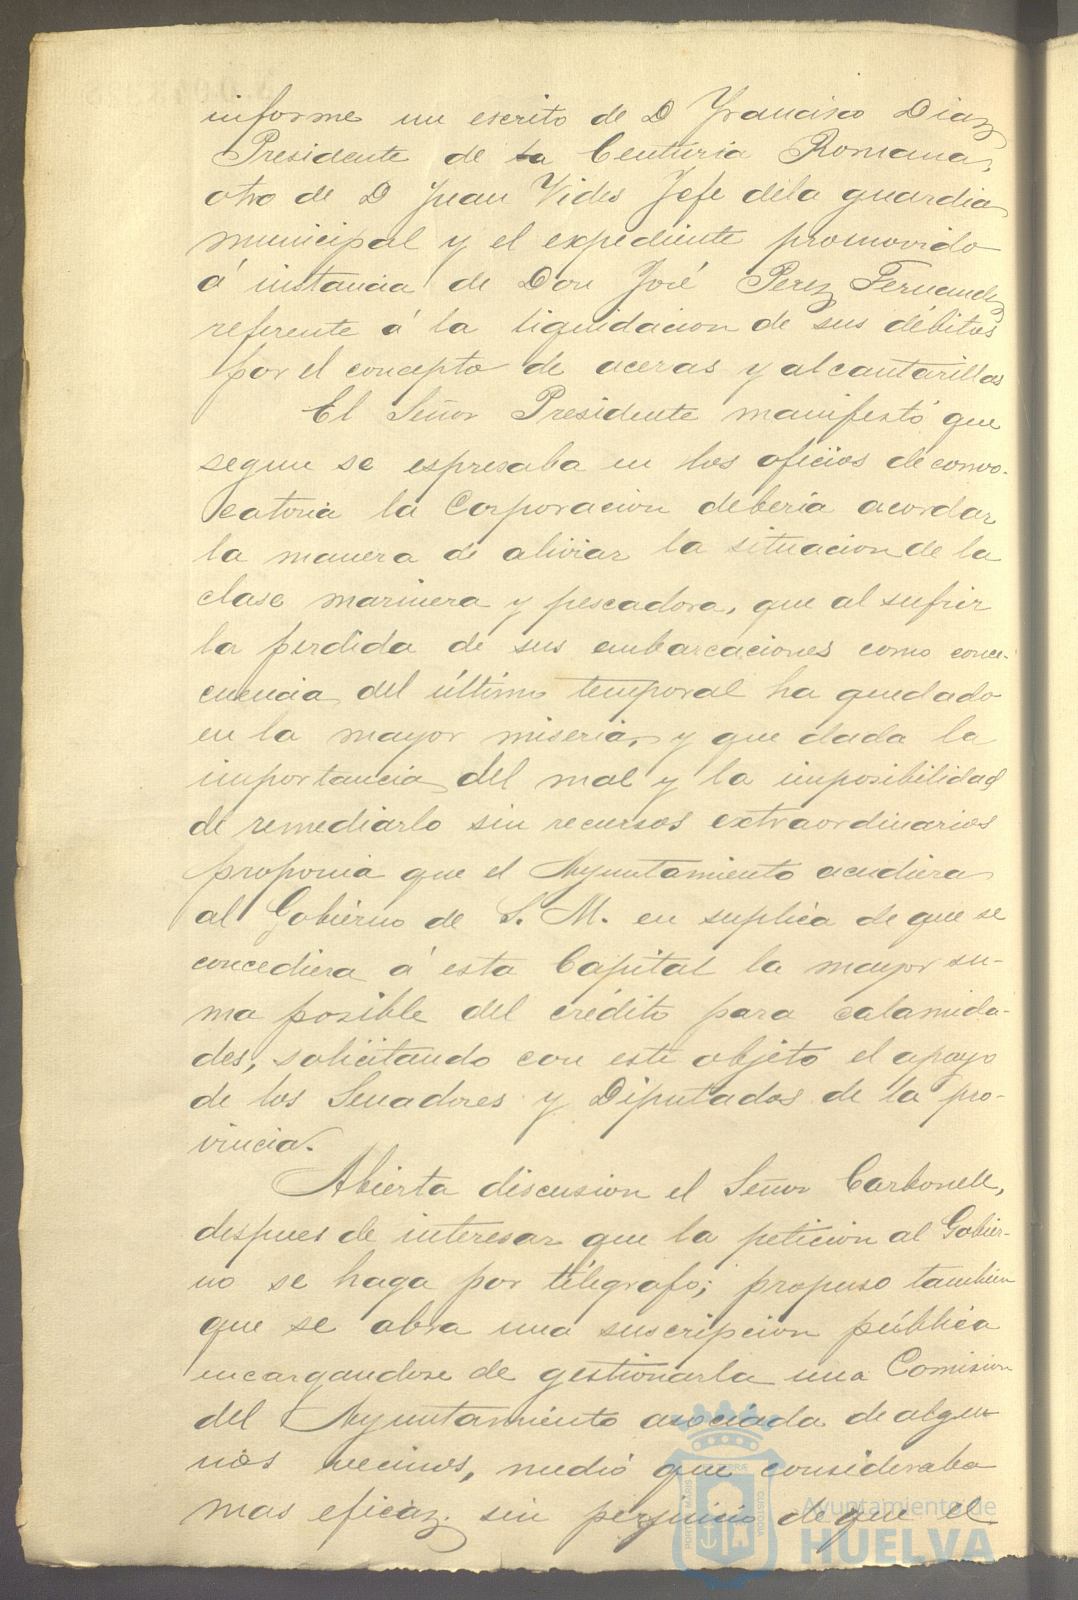 informe un escrito de D Francisco Diaz
Presidente de la Centuria Romana,
otro de D Juan Vides Jefe dela guardia
municipal y el expediente promovido
á instancia de Don José Perez Fernandez
referente á la liquidacion de sus débitos
por el concepto de aceras y alcantarillas
El Señor Presidente manifestó que
segun se espresaba en los oficios de convo-
catoria la Corporacion deberia acordar
la manera de aliviar la situacion de la
clase marinera y pescadora, que al sufrir
la perdida de sus embarcaciones como conse-
cuencia del último temporal ha quedado
en la mayor miseria, y que dada la
importancia del mal y la imposibilidad
de remediarlo sin recursos extraordinarios
proponia que el Ayuntamiento acudiera
al Gobierno de S. M. en suplica de que se
concediera á esta Capital la mayor su-
ma posible del crédito para calamida-
des, solicitando con este objeto el apoyo
de los Senadores y Diputados de la pro-
vincia.
Abierta discusion el Señor Carbonell,
despues de interesar que la peticion al Gobier-
no se haga por télegrafo; propuso tambien
que se abra una suscripcion pública
encargandose de gestionarla una Comision
del Ayuntamiento asociada de algu-
nos vecinos, medio que consideraba
mas eficaz, sin perjuicio de que el
PORTUS MARIS ET TERRAE CUSTODIA
Ayuntamiento de
HUELVA